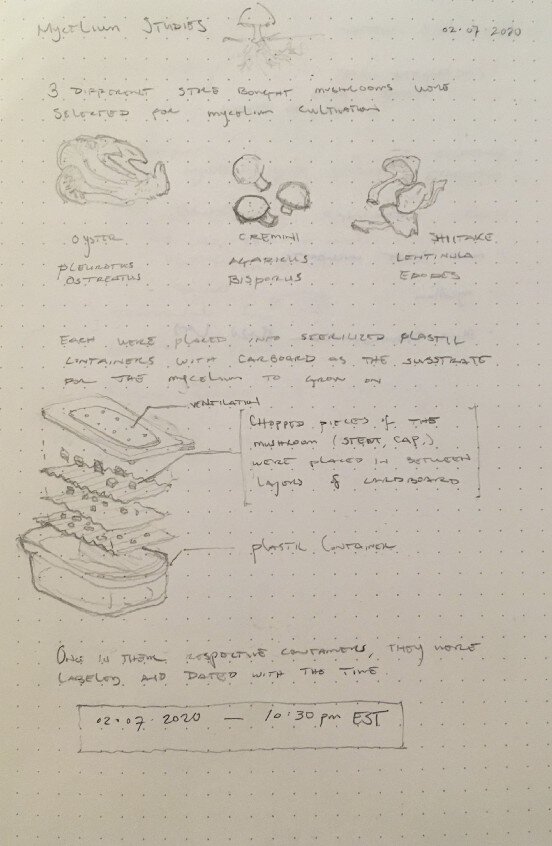 Mycelium Studies
02.07 2020
3 DIFFERENT STORE BOUGHT MUSHROOMS WERE
SELECTED FOR MYCELIUM CULTIVATION
OYSTER
PLEUROTUS
OSTREATUS
CREMINI
AGARICUS
BISPORUS
SHIITAKE
LENTINULA
EDODES
EACH WERE PLACED INTO STERILIZED PLASTIC
CONTAINERS WITH CARBOARD AS THE SUBSTRATE
FOR THE MYCELIUM TO GROW ON
VENTILATION
CHOPPED PIECES of THE
MUSHROOM ( CAP.)
WERE PLACED IN BETWEEN
LAYERS of CARDBOARD
PLASTIC CONTAINER
ONCE IN THEIR RESPECTIVE CONTAINERS, THEY WERE
LABELED AND DATED WITH THE TIME
02.07.2020 — 10:30 pm EST